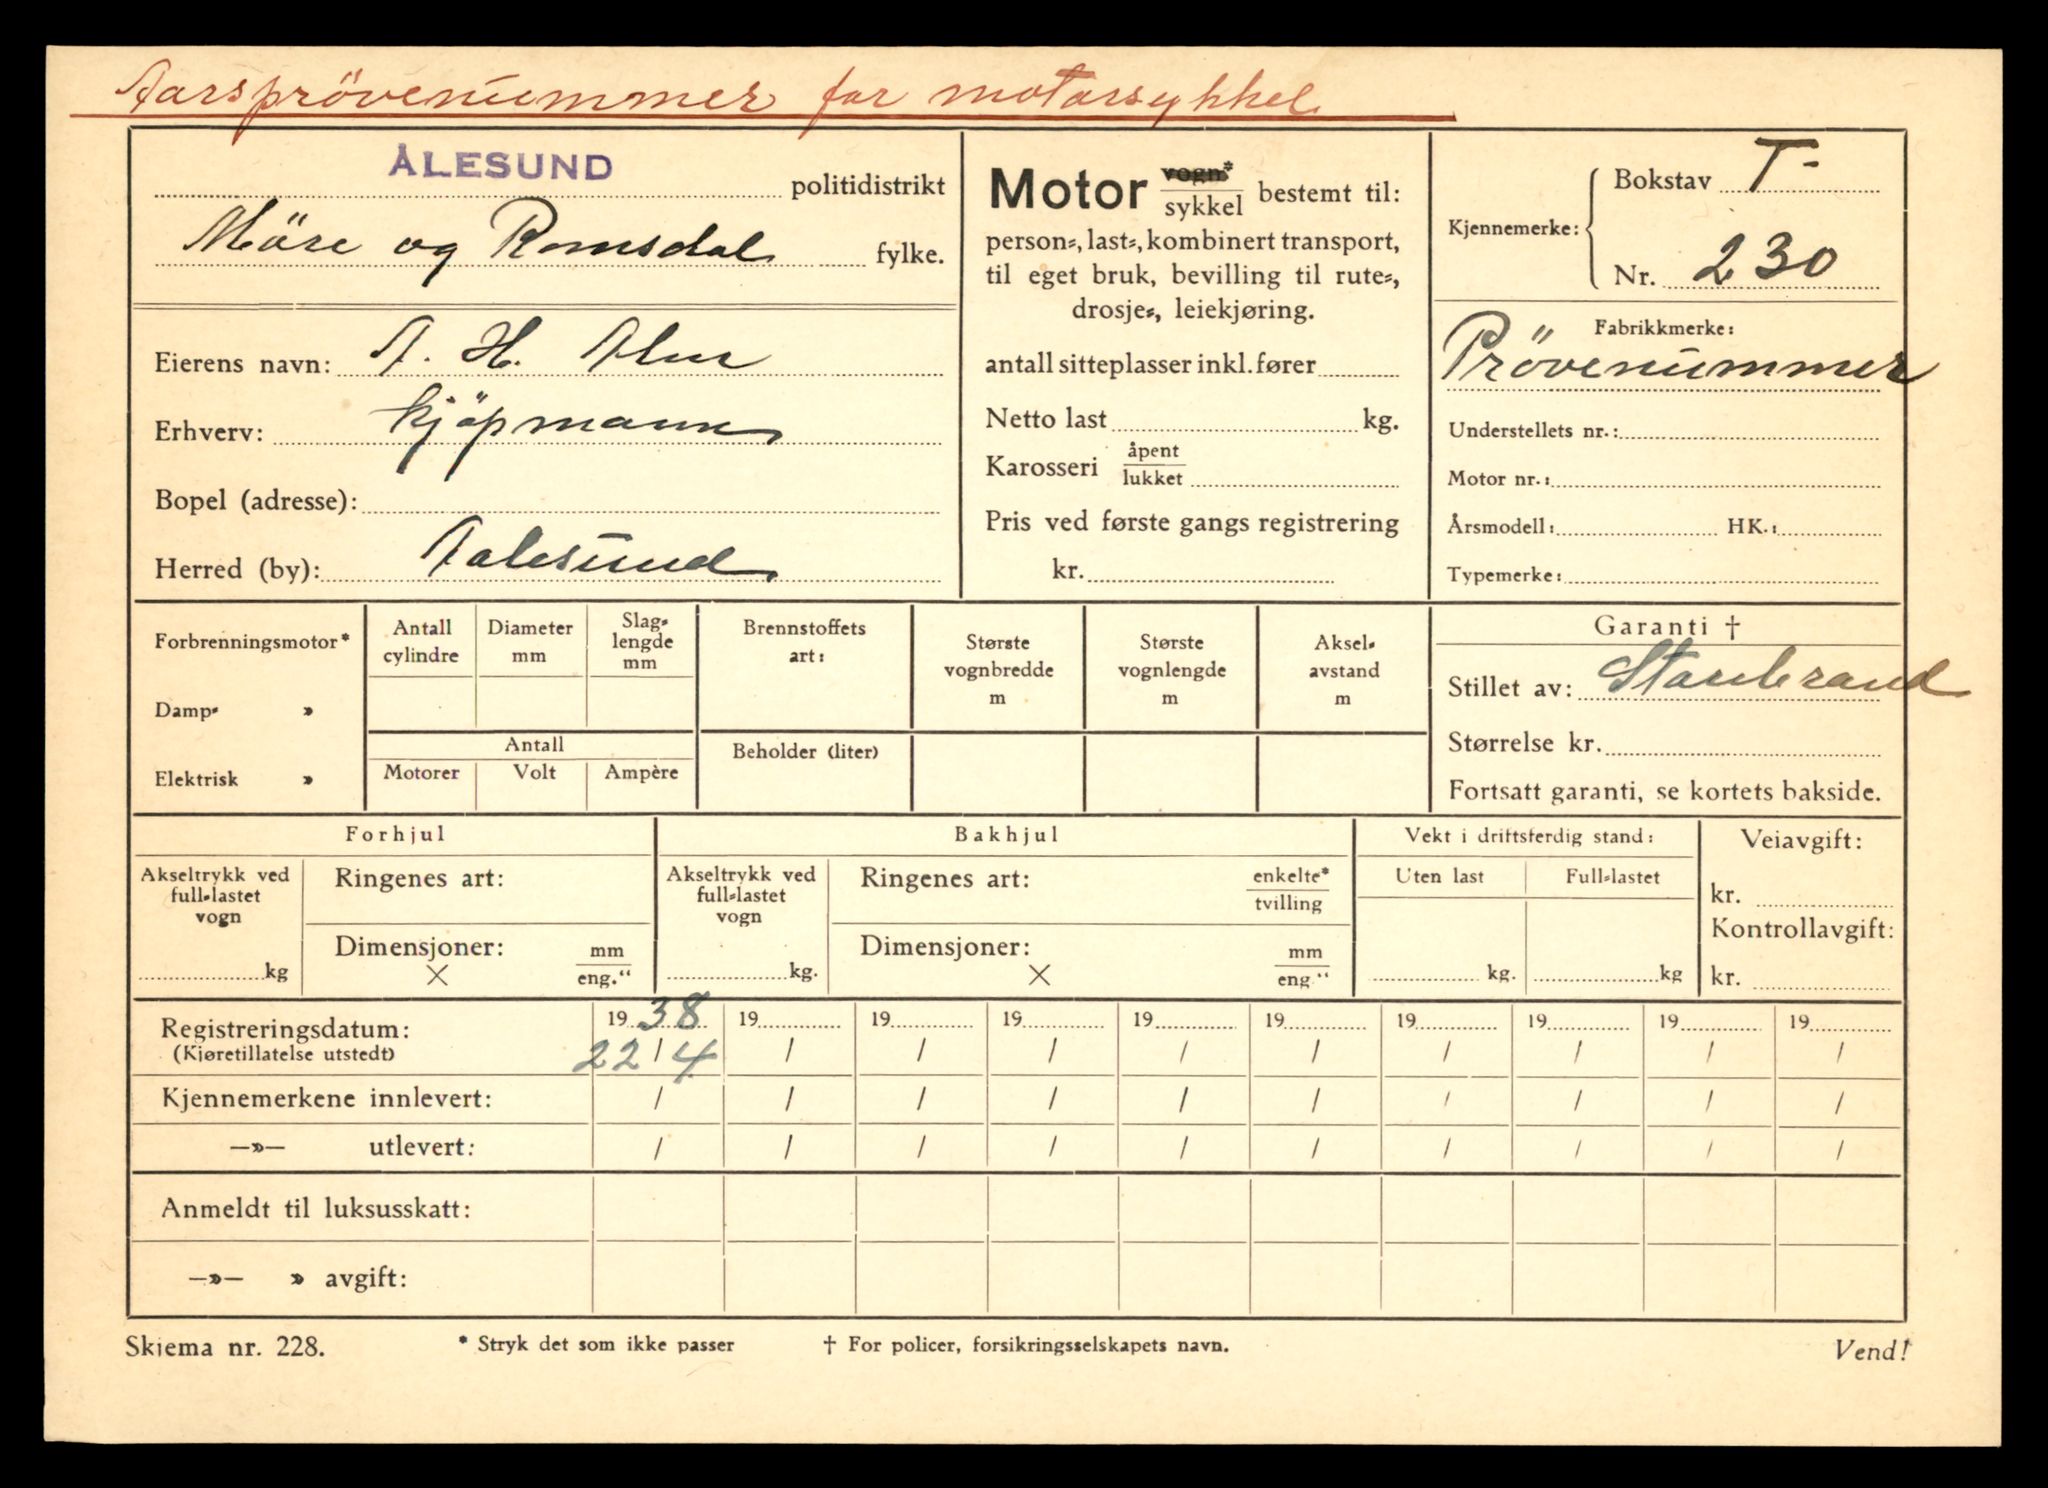 Aarsprövenummer for motorsykkel
ÅLESUND politidistrikt
Möre og Romsdal fylke.
Eierens navn: A. H.
Erhverv: kjöpmann
Bopel (adresse):
Herred (by): Aalesund
Motor vogn* sykkel bestemt til:
person-, last-, kombinert transport,
til eget bruk, bevilling til rute-,
drosje-, leiekjøring.
antall sitteplasser inkl. fører
Netto last kg.
Karosseri åpent lukket
Pris ved første gangs registrering
kr.
Kjennemerke:
Bokstav T-
Nr. 230
Fabrikkmerke:
Prövenummer
Understellets nr.:
Motor nr.:
Årsmodell: HK.:
Typemerke:
Forbrenningsmotor*
Damp- »
Elektrisk »
Antall cylindre
Diameter mm
Slag-lengde mm
Antall
Motorer Volt Ampère
Brennstoffets art:
Beholder (liter)
Største vognbredde m
Største vognlengde m
Aksel-avstand m
Garanti †
Stillet av: Storebrand
Størrelse kr.
Fortsatt garanti, se kortets bakside.
Forhjul
Akseltrykk ved full-lastet vogn
kg
Ringenes art:
Dimensjoner: mm
× eng."
Bakhjul
Akseltrykk ved full-lastet vogn
kg.
Ringenes art: enkelte* tvilling
Dimensjoner: mm
× eng."
Vekt i driftsferdig stand:
Uten last Full-lastet
kg. kg
Veiavgift:
kr.
Kontrollavgift:
kr.
Registreringsdatum: 1938 19 19 19 19 19 19 19 19 19
(Kjøretillatelse utstedt) 22/4 / / / / / / / / /
Kjennemerkene innlevert: / / / / / / / / / /
—»— utlevert: / / / / / / / / / /
Anmeldt til luksusskatt:
—»— » avgift:
Skjema nr. 228. * Stryk det som ikke passer † For policer, forsikringsselskapets navn. Vend!